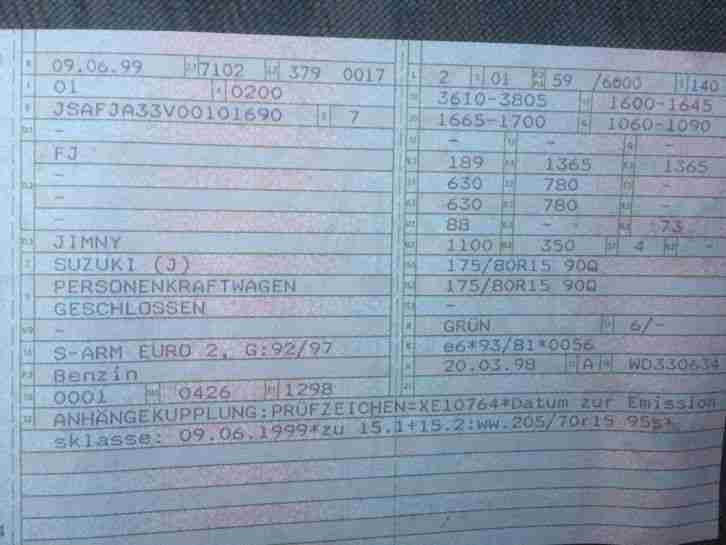 09.06.99 7102 379 0017
01 0200
JSAFJA33V00101690 7
-
FJ
-
-
-
JIMNY
SUZUKI (J)
PERSONENKRAFTWAGEN
GESCHLOSSEN
-
S-ARM EURO 2, G:92/97
Benzin
0001 0426 1298
2 01 59 /6000 140
3610-3805 1600-1645
1665-1700 1060-1090
- - -
189 1365 1365
630 780 -
630 780 -
88 - - 73
1100 350 4 -
175/80R15 90Q
175/80R15 90Q
-
GRÜN 6/-
e6*93/81*0056
20.03.98 A WD330634
ANHÄNGEKUPPLUNG:PRÜFZEICHEN=XE10764*Datum zur Emission
sklasse: 09.06.1999*zu 15.1+15.2:ww.205/70r15 95s*